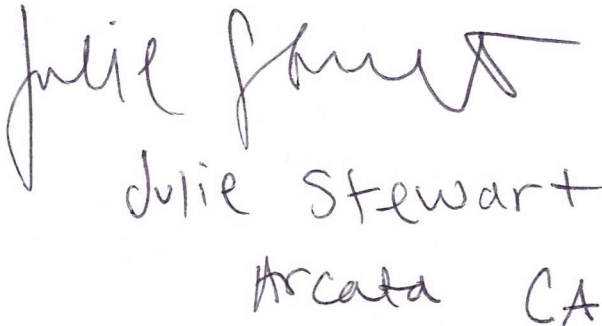 Julie Stewart
Julie Stewart
Arcata CA